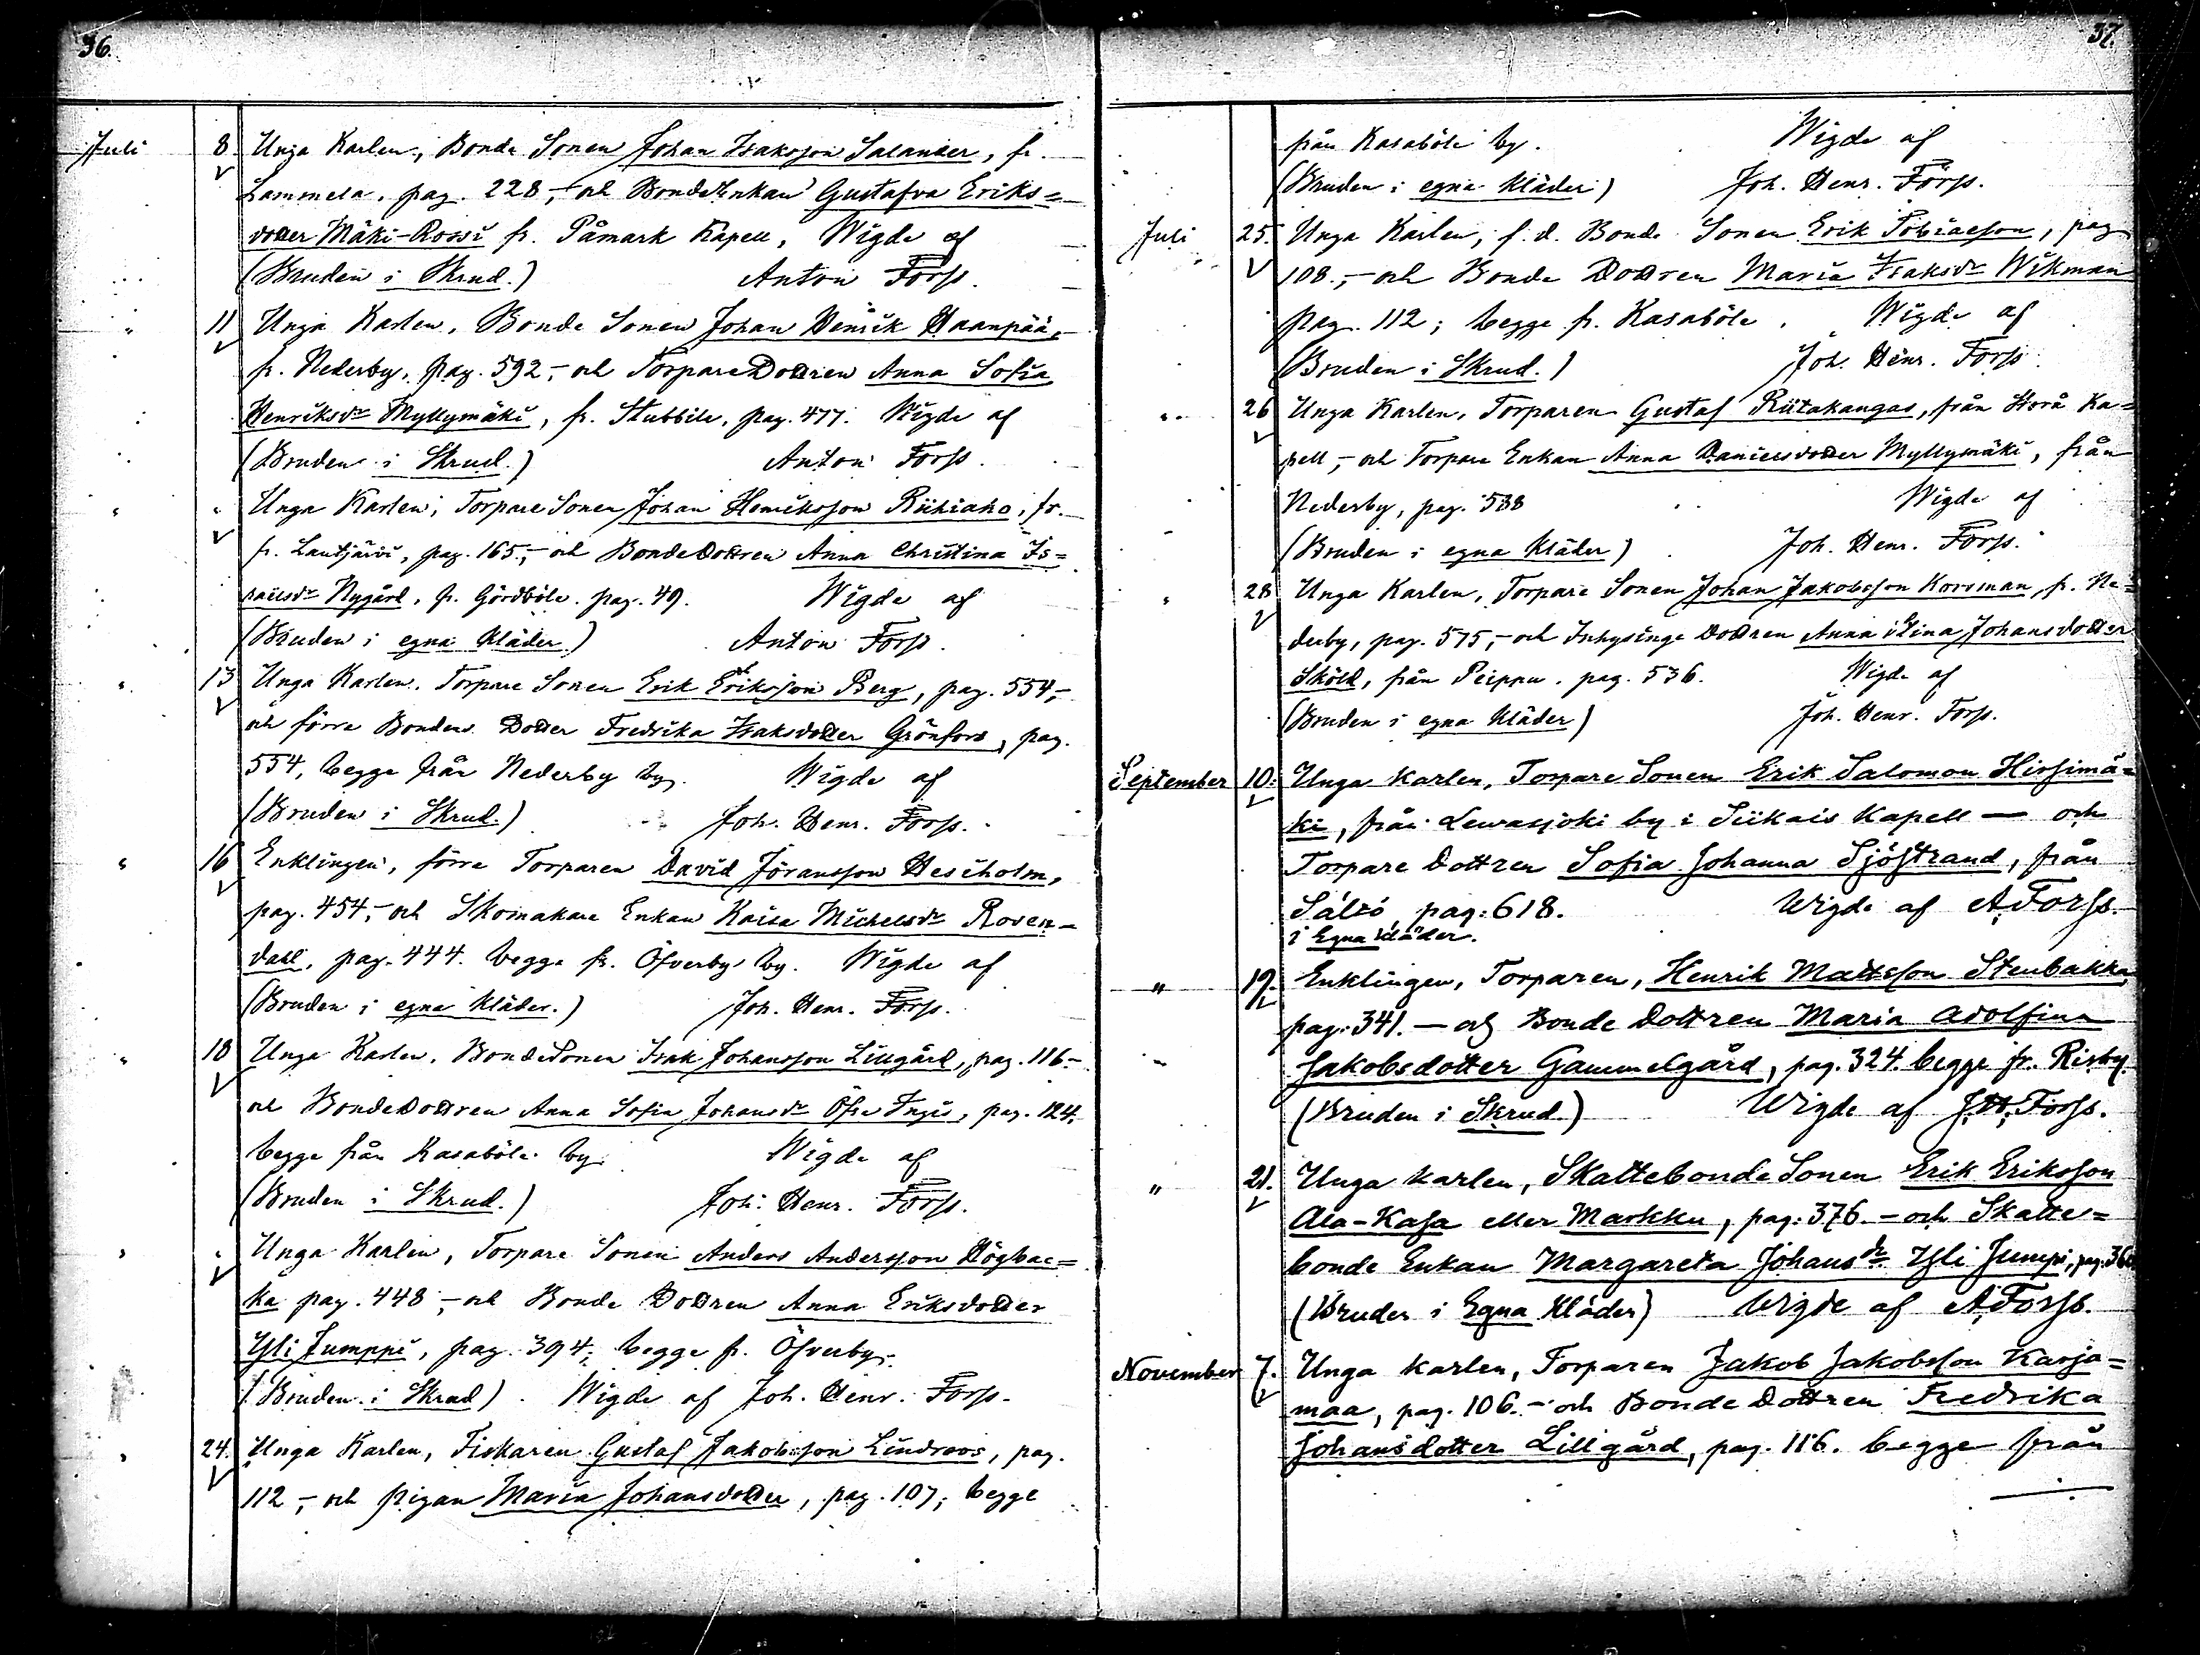 36.
Juli 8. Unga Karlen, Bonde Sonen Johan Isaksson Salander, fr.
Lammela, pag. 228,- och BondeEnkan Gustafva Eriks=
dotter Mäki-Rossi fr. Påmark Kapell, Wigde af
(Bruden i Skrud.) Anton Forss.
" 11 Unga Karlen, Bonde Sonen Johan Henrik Haanpää,
fr. Nederby, pag. 592,- och TorpareDottren Anna Sofia
Henriksdr Myllymäki, fr. Stubbile, pag. 477. Wigde af
(Bruden i Skrud.) Anton Forss.
" " Unga Karlen, Torpare Sonen Johan Henriksson Riihiaho, fr.
fr. Lautjärvi, pag. 165,- och BondeDottren Anna Christina Is=
raelsdr Nygård, fr. Gördböle. pag. 49. Wigde af
(Bruden i egna Kläder) Anton Forss.
" 13 Unga Karlen, Torpare Sonen Erik Eriksson Berg, pag. 554,-
och förre Bondens Dotter Fredrika Isaksdotter Grönfors, pag.
554, begge från Nederby by. Wigde af
(Bruden i Skrud.) Joh. Henr. Forss.
" 16 Enklingen, förre Torparen David Jöransson Heseholm,
pag. 454,- och Skomakare Enkan Kaisa Michelsdr Rosen-
dahl, pag. 444. begge fr. Öfverby by. Wigde af
(Bruden i egna Kläder.) Joh. Henr. Forss.
" 18 Unga Karlen, BondeSonen Isak Johansson Lillgård, pag. 116-
och BondeDottren Anna Sofia Johansdr Öfre Ingis, pag. 124.
begge från Kasaböle by. Wigde af
(Bruden i Skrud.) Joh. Henr. Forss.
" " Unga Karlen, Torpare Sonen Anders Andersson Högbac=
ka pag. 448,- och Bonde Dottren Anna Eriksdotter
Yli Jumppi, pag. 394; begge fr. Öfverby.
(Bruden i Skrud) Wigde af Joh. Henr. Forss.
" 24. Unga Karlen, Fiskaren Gustaf Jakobsson Lindroos, pag.
112,- och pigan Maria Johansdotter, pag. 107; begge
37.
från Kasaböle by. Wigde af
(Bruden i egna Kläder) Joh. Henr. Forss.
Juli 25. Unga Karlen, f.d. Bonde Sonen Erik Tobiaesson, pag
108,- och Bonde Dottren Maria Isaksdr Wikman
pag. 112; begge fr. Kasaböle. Wigde af
(Bruden i Skrud.) Joh. Henr. Forss.
" 26 Unga Karlen, Torparen Gustaf Riitakangas, från Storå Ka=
pell,- och Torpare Enkan Anna Danielsdotter Myllymäki, från
Nederby, pag. 588 Wigde af
(Bruden i egna Kläder) Joh. Henr. Forss.
" 28 Unga Karlen, Torpare Sonen Johan Jakobsson Korsman, fr. Ne=
derby, pag. 575,- och Inhysinge Dottren Anna Stina Johansdotter
Sköld, från Peippu. pag. 536. Wigde af
(Bruden i egna Kläder) Joh. Henr. Forss.
September 10. Unga karlen, Torpare Sonen Erik Salomon Hirsimä=
ki, från Lewasjoki by i Siikais Kapell — och
Torpare Dottren Sofia Johanna Sjöstrand, från
Sältö, pag: 618. Wigde af A. Forss.
i Egna kläder.
" 19. Enklingen, Torparen, Henrik Mattsson Stenbakka
pag: 341. — och Bonde Dottren Maria Adolfina
Jakobsdotter Gammelgård, pag. 324. begge fr. Risby.
(Bruden i Skrud.) Wigde af J.H. Forss.
" 21. Unga karlen, Skattebonde Sonen Erik Eriksson
Ala-Kasa eller Markku, pag: 376. - och Skatte=
bonde Enkan Margareta Johansdr. Yli Jumpi, pag. 360
(Bruden i Egna Kläder) Wigde af A. Forss.
November 7. Unga karlen, Torparen Jakob Jakobsson Karja=
maa, pag. 106. - och Bonde Dottren Fredrika
Johansdotter Lillgård, pag. 116. begge från